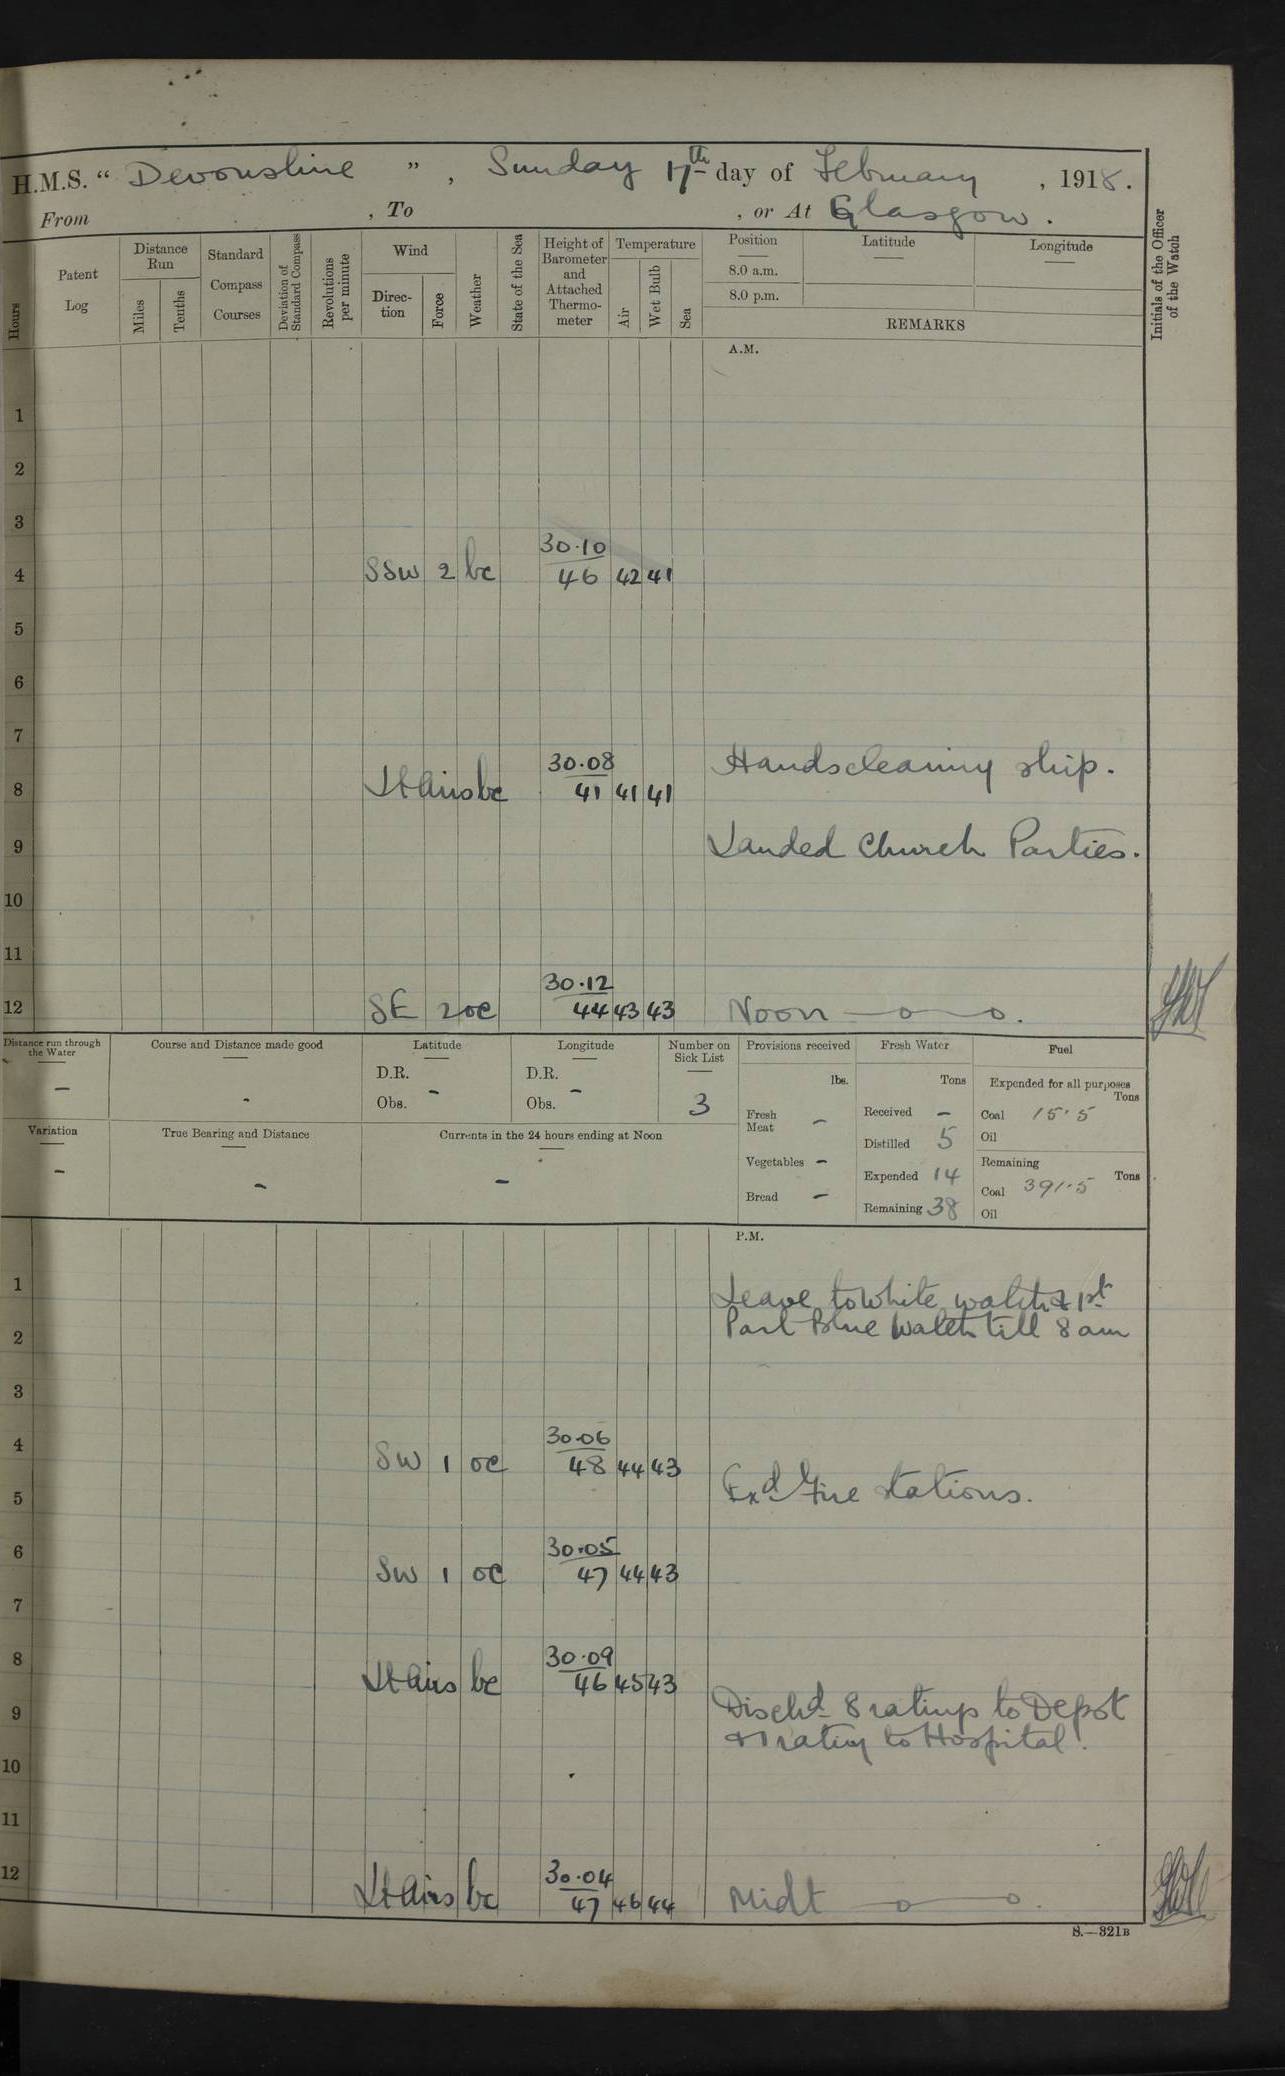 H.M.S. “ Devonshire ” , Sunday 17th day of February , 1918.
From , To , or At Glasgow.
Hours
Patent Log
Distance Run
Miles
Tenths
Standard Compass Courses
Deviation of Standard Compass
Revolutions per minute
Wind
Direction
Force
Weather
State of the Sea
Height of Barometer and Attached Thermometer
Temperature
Air
Wet Bulb
Sea
Position
8.0 a.m.
8.0 p.m.
Latitude
Longitude
REMARKS
Initials of the Officer of the Watch
A.M.
1
2
3
30.10
4 SSW 2 bc 46 42 41
5
6
7
30.08 Hands cleaning ship.
8 Lt Airs bc 41 41 41
9 Landed Church Parties.
10
11
30.12
12 SE 2 oc 44 43 43 Noon —o—o.
Distance run through the Water
–
Course and Distance made good
-
Latitude
D.R.
Obs. -
Longitude
D.R. -
Obs.
Number on Sick List
3
Provisions received
lbs.
Fresh Meat –
Vegetables –
Bread –
Fresh Water
Tons
Received –
Distilled 5
Expended 14
Remaining 38
Fuel
Expended for all purposes
Tons
Coal 15.5
Oil
Remaining
Tons
Coal 391.5
Oil
Variation
–
True Bearing and Distance
–
Currents in the 24 hours ending at Noon
–
P.M.
1 Leave to White watch & 1st
2 Part Blue Watch till 8 am
3
30.06
4 SW 1 oc 48 44 43
5 Exd Fire Stations.
30.05
6 SW 1 oc 47 44 43
7
30.09
8 Lt Airs bc 46 45 43
9 Dischd 8 ratings to Depot
& 1 rating to Hospital.
10
11
30.04
12 Lt Airs bc 47 46 44 Midt —o—o.
S.—321B